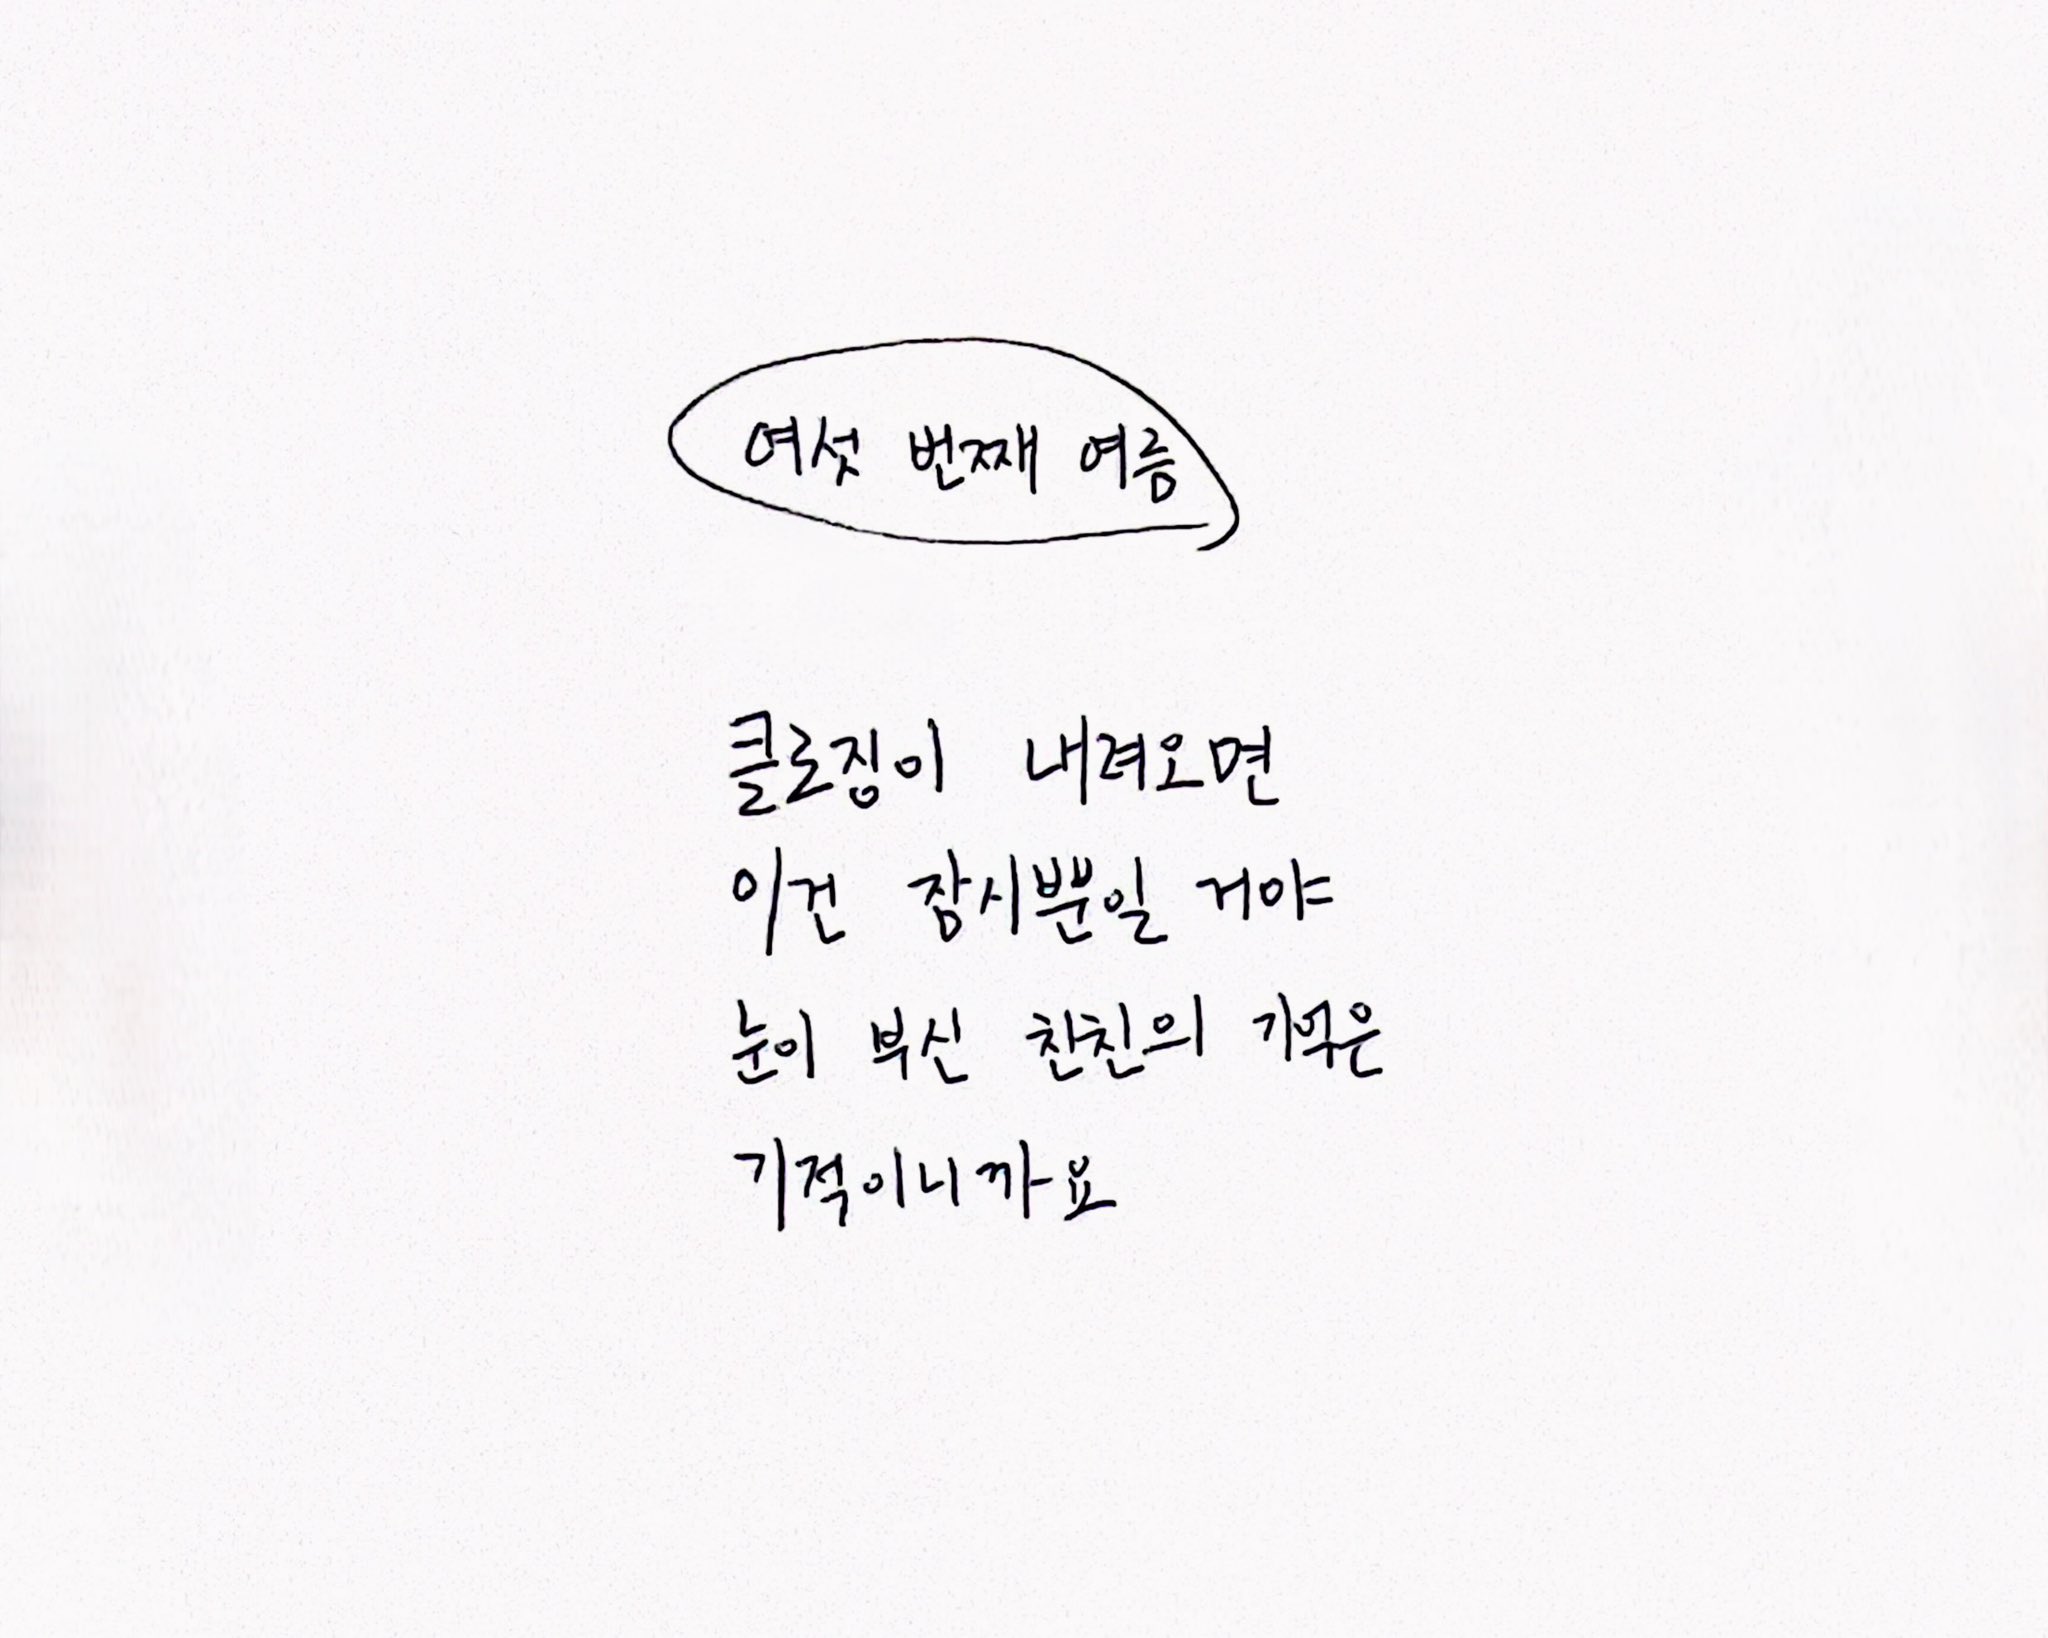 여섯 번째 여름
클로징이 내려오면
이건 잠시뿐일 거야
눈이 부신 찬친의 기억은
기적이니까요